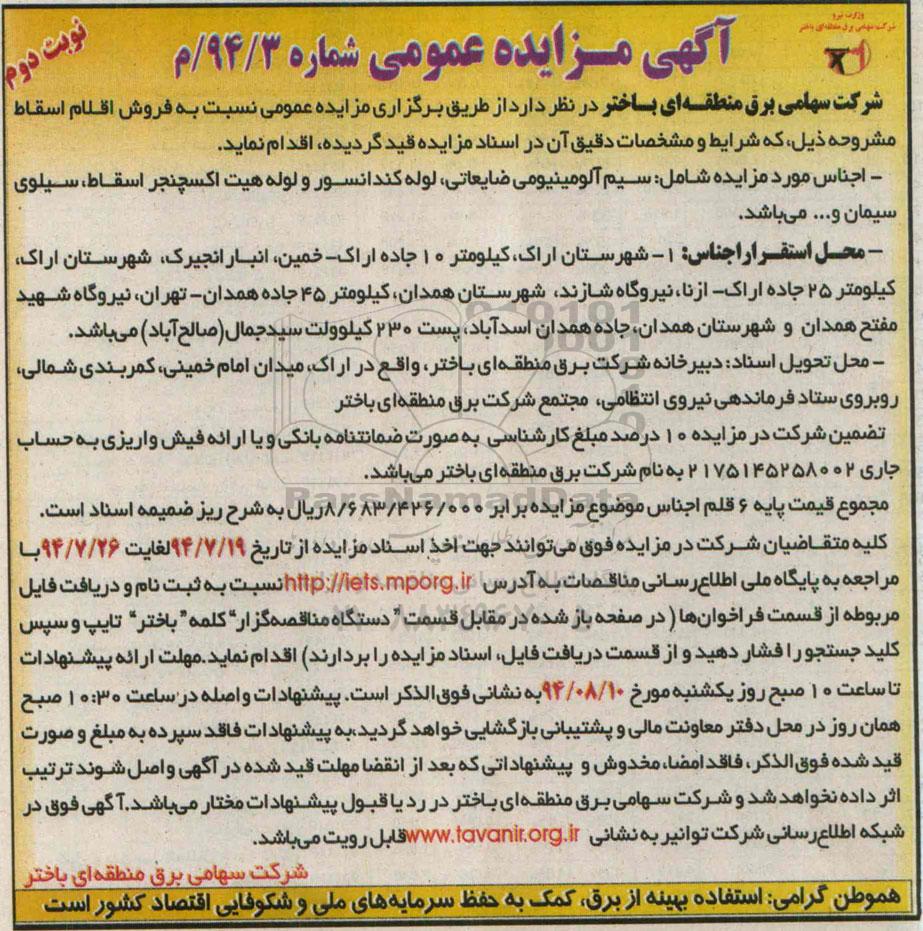 وزارت نیرو
شرکت سهامی برق منطقه‌ای باختر
نوبت دوم
آگهی مزایده عمومی شماره ۹۴/۳/م
شرکت سهامی برق منطقه‌ای باختر در نظر دارد از طریق برگزاری مزایده عمومی نسبت به فروش اقلام اسقاط
مشروحه ذیل، که شرایط و مشخصات دقیق آن در اسناد مزایده قید گردیده، اقدام نماید.
- اجناس مورد مزایده شامل: سیم آلومینیومی ضایعاتی، لوله کندانسور و لوله هیت اکسچنجر اسقاط، سیلوی
سیمان و... می‌باشد.
- محل استقرار اجناس: ۱- شهرستان اراک، کیلومتر ۱۰ جاده اراک- خمین، انبار انجیرک، شهرستان اراک،
کیلومتر ۲۵ جاده اراک- ازنا، نیروگاه شازند، شهرستان همدان، کیلومتر ۴۵ جاده همدان- تهران، نیروگاه شهید
مفتح همدان و شهرستان همدان، جاده همدان اسدآباد، پست ۲۳۰ کیلوولت سیدجمال(صالح‌آباد) می‌باشد.
- محل تحویل اسناد: دبیرخانه شرکت برق منطقه‌ای باختر، واقع در اراک، میدان امام خمینی، کمربندی شمالی،
روبروی ستاد فرماندهی نیروی انتظامی، مجتمع شرکت برق منطقه‌ای باختر
تضمین شرکت در مزایده ۱۰ درصد مبلغ کارشناسی به صورت ضمانتنامه بانکی و یا ارائه فیش واریزی به حساب
جاری ۲۱۷۵۱۴۵۲۵۸۰۰۲ به نام شرکت برق منطقه‌ای باختر می‌باشد.
ParsNamadData
مجموع قیمت پایه ۶ قلم اجناس موضوع مزایده برابر ۸/۶۸۳/۴۲۶/۰۰۰ریال به شرح ریز ضمیمه اسناد است.
کلیه متقاضیان شرکت در مزایده فوق می‌توانند جهت اخذ اسناد مزایده از تاریخ ۹۴/۷/۱۹لغایت ۹۴/۷/۲۶با
مراجعه به پایگاه ملی اطلاع‌رسانی مناقصات به آدرس http://iets.mporg.ir نسبت به ثبت نام و دریافت فایل
مربوطه از قسمت فراخوان‌ها ( در صفحه باز شده در مقابل قسمت "دستگاه مناقصه‌گزار" کلمه "باختر" تایپ و سپس
کلید جستجو را فشار دهید و از قسمت دریافت فایل، اسناد مزایده را بردارند) اقدام نماید.مهلت ارائه پیشنهادات
تا ساعت ۱۰ صبح روز یکشنبه مورخ ۹۴/۰۸/۱۰به نشانی فوق‌الذکر است. پیشنهادات واصله در ساعت ۱۰:۳۰ صبح
همان روز در محل دفتر معاونت مالی و پشتیبانی بازگشایی خواهد گردید،به پیشنهادات فاقد سپرده به مبلغ و صورت
قید شده فوق‌الذکر، فاقد امضا، مخدوش و پیشنهاداتی که بعد از انقضا مهلت قید شده در آگهی واصل شوند ترتیب
اثر داده نخواهد شد و شرکت سهامی برق منطقه‌ای باختر در رد یا قبول پیشنهادات مختار می‌باشد.آگهی فوق در
شبکه اطلاع‌رسانی شرکت توانیر به نشانی www.tavanir.org.ir قابل رویت می‌باشد.
شرکت سهامی برق منطقه‌ای باختر
هموطن گرامی: استفاده بهینه از برق، کمک به حفظ سرمایه‌های ملی و شکوفایی اقتصاد کشور است